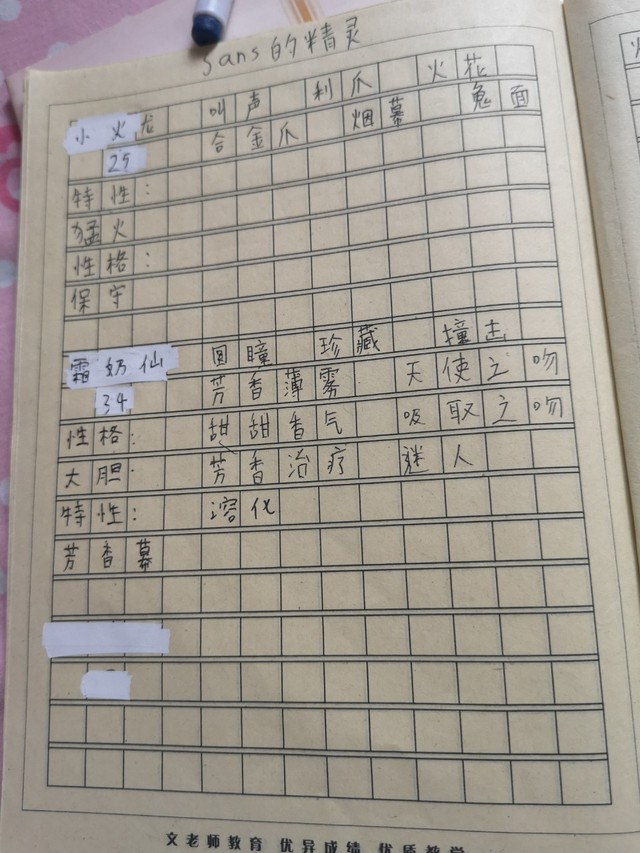 Sans的精灵
小火龙 叫声 利爪 火花
25 合金爪 烟幕 兔面
特性：
猛火
性格：
保守
霜奶仙 圆瞳 珍藏 撞击
34 芳香薄雾 天使之吻
性格： 甜甜香气 吸取之吻
大胆 芳香治疗 迷人
特性： 溶化
芳香幕
文老师教育 优异成绩 优质教学